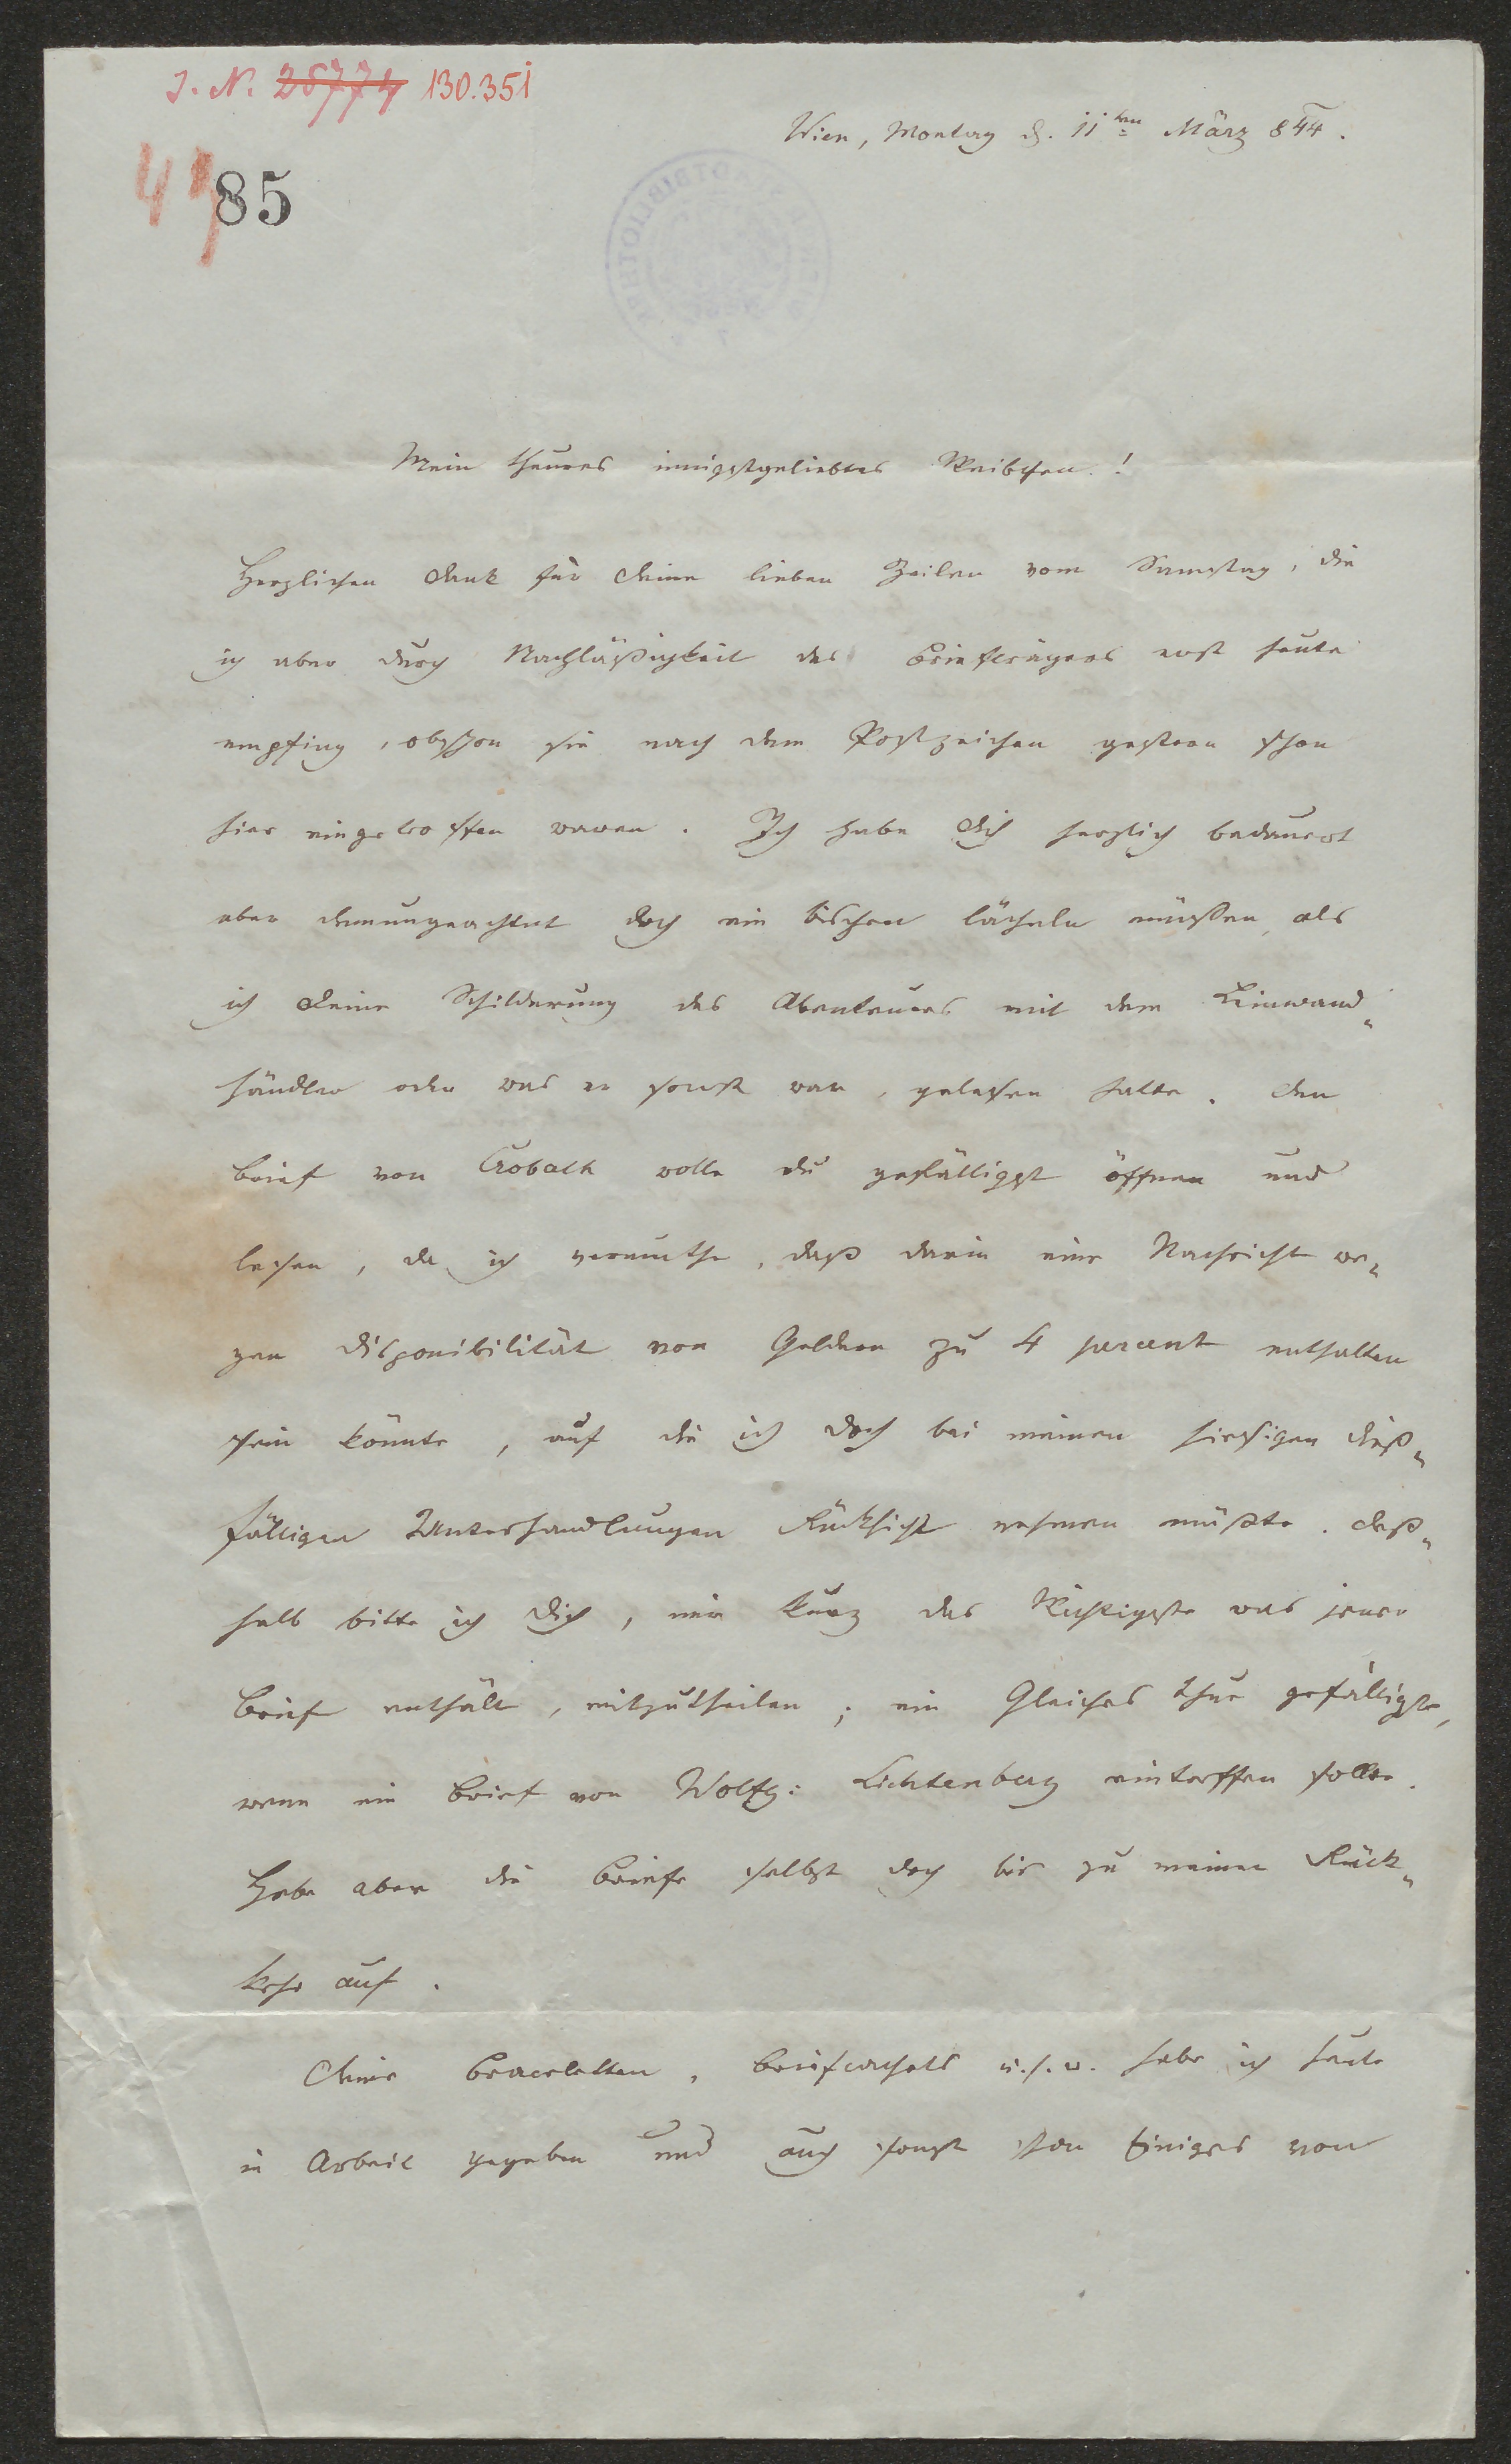 J. N. 26774 130.351
Wien, Montag d. 11ten März 844.
85
Mein theures innigstgeliebtes Weibchen!
Herzlichen Dank für Deine lieben Zeilen vom Samstag, die
ich aber durch Nachläßigkeit des Briefträgers erst heute
empfing, obschon sie nach dem Postzeichen gestern schon
hier eingetroffen waren. Ich habe Dich herzlich bedauert
aber demungeachtet doch ein bischen lächeln müßen, als
ich Deine Schilderung des Abenteuers mit dem Leinwand-
händler oder was er sonst war, gelesen hatte. Den
Brief von Trobath wolle Du gefälligst öffnen und
lesen, da ich vermuthe, daß darin eine Nachricht we-
gen Disponibilität von Geldern zu 4 percent enthalten
sein könnte, auf die ich doch bei meinen hiesigen dieß-
fälligen Unterhandlungen Rücksicht nehmen müßte. Deß-
halb bitte ich Dich, mir kurz das Wichtigste was jener
Brief enthält, mitzutheilen; ein Gleiches thue gefälligst,
wenn ein Brief von Wolfg: Lichtenberg eintreffen sollte.
Hebe aber die Briefe selbst doch bis zu meiner Rück-
kehr auf.
Deine Braceletten, Briefcachets u.s.w. habe ich heute
in Arbeit gegeben und auch sonst schon Einiges von